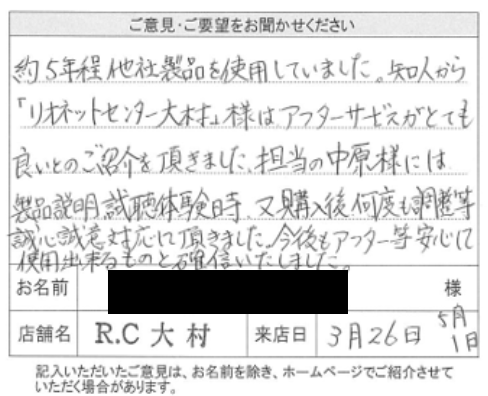 ご意見・ご要望をお聞かせください
約5年程他社製品を使用していました。知人から
「リオネットセンター大村」様はアフターサービスがとても
良いとのご紹介を頂きました、担当の中原様には
製品説明、試聴体験時、又購入後何度も調整等
誠心誠意対応して頂きました。今後もアフター等安心して
使用出来るものと確信いたしました。
お名前 様
店舗名 R.C大村 来店日 3月26日 5月1日
記入いただいたご意見は、お名前を除き、ホームページでご紹介させて
いただく場合があります。